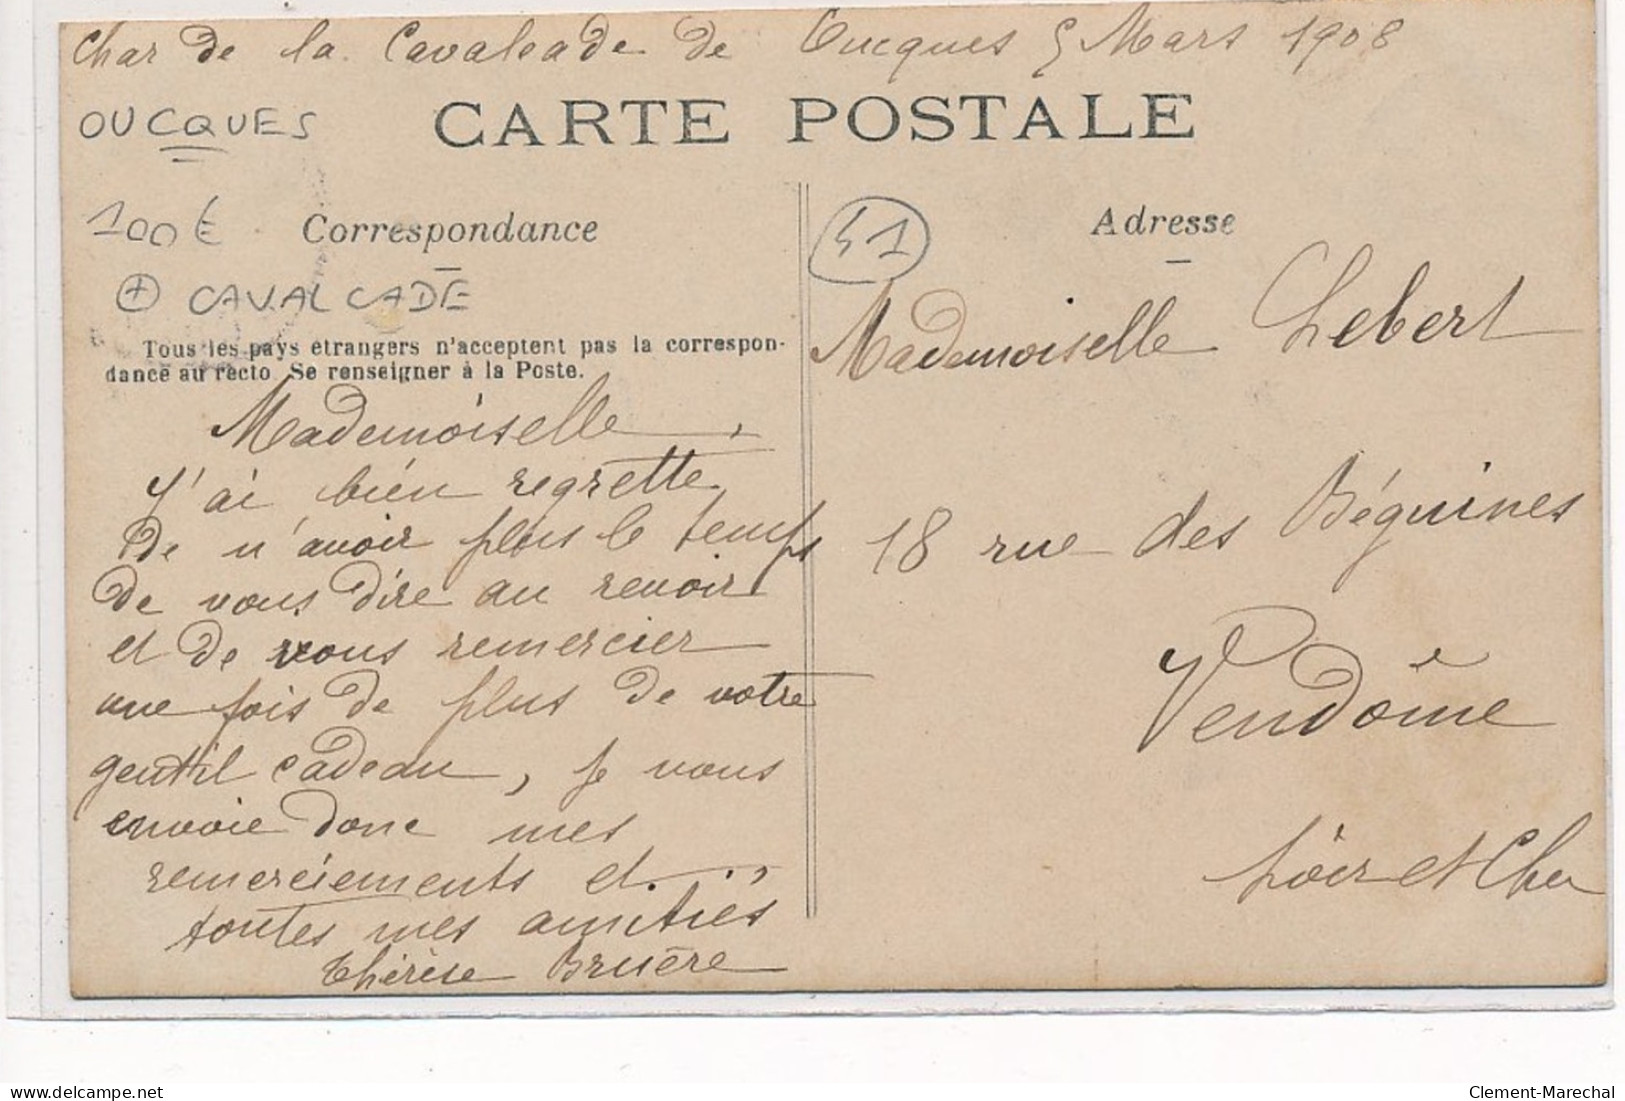 Char de la Cavalcade de Oucques 5 Mars 1908
OUCQUES
CARTE POSTALE
100€
Correspondance
+ CAVALCADE
Tous les pays étrangers n'acceptent pas la correspon-
dance au recto. Se renseigner à la Poste.
Mademoiselle,
J'ai bien regretté
de n'avoir plus le temps
de vous dire au revoir
et de vous remercier
une fois de plus de votre
gentil cadeau, je vous
envoie donc mes
remerciements et
toutes mes amitiés
Thérèse Bruère
41
Adresse
Mademoiselle Lebert
18 rue des Béguines
Vendôme
Loir et Cher
delcampe.net
Clement-Marechal